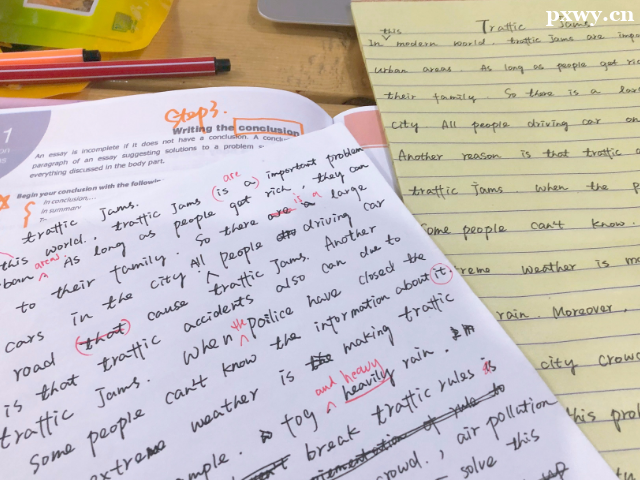 pxwy.cn
Traffic Jams
this
In modern world. traffic jams are impo
urban areas. As long as people got ric
their family. So there is a lar
city All people driving car on
Another reason is that traffic a
traffic jams when the p
Some people can't know.
reme weather is m
rain. Moreover,
city crow
his prob
Step3.
Writing the conclusion
An essay is incomplete if it does not have a conclusion. A conclu
paragraph of an essay suggesting solutions to a problem
everything discussed in the body part.
Begin your conclusion with the following
in conclusion....
in summary
traffic jams.
are
this world. traffic jams (is a) important problem
areas
rban As long as people got rich, they can
is a
to their family. So there are a large
cars in the city All people driving car
road that cause traffic Jams. Another
is that traffic accidents also can due to
the
traffic jams. When poilice have closed the
Some people can't know the information about it.
extreme weather is making traffic
and heavy
mple. fog heavily rain.
break traffic rules is
ementation of rule to
crowd., air pollation
solve this